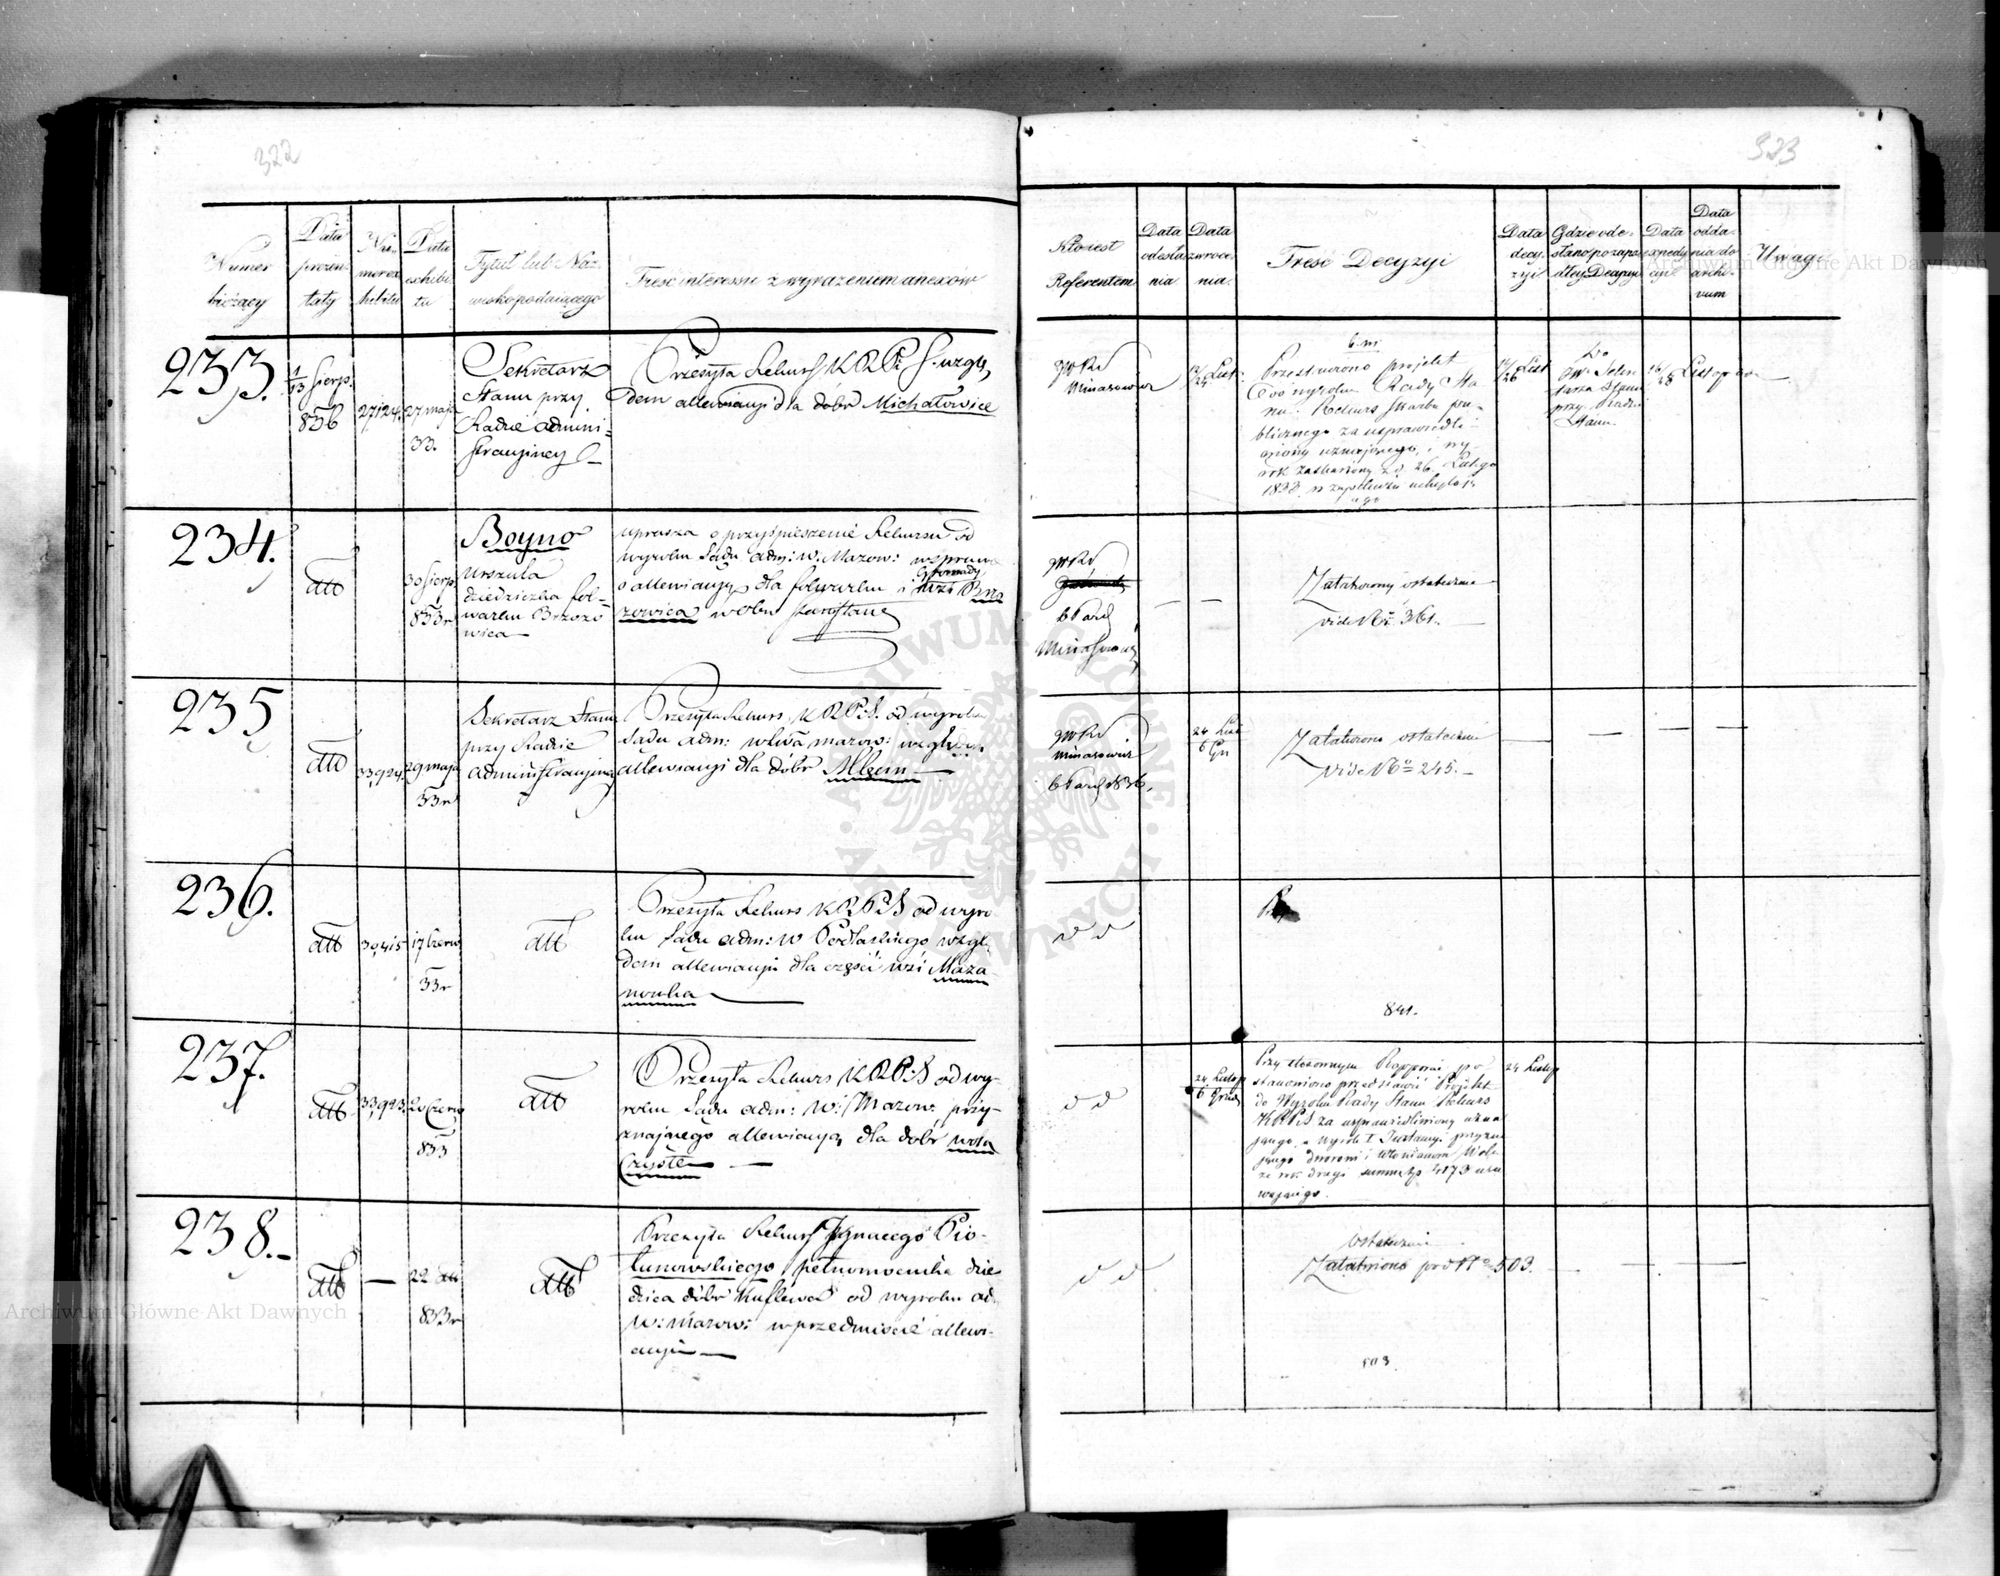 322
Numer bieżący
Data prezentaty
Numer exhibitu
Data exhibitu
Tytuł lub Nazwisko podającego
Treść interessu z wyrażeniem anexów
233.
1/13 Sierp.
836
27124.
27 maja
33.
Sekretarz
Stanu przy
Radzie admini-
stracyjney
Przesyła Rekurs KRPiS. wzglę-
dem allewiacyi dla dóbr Michałowice
234.
dtto
30 Sierp.
833r
Boyno
Urszula
dziedziczka fol-
warku Brzozo
wica
uprasza o przyśpieszenie Rekursu od
wyroku Sądu adm: W. Mazow: w sprawie
o allewiacyę dla folwarku i wsi Brzo
gromady
zowica
235
dtto
33,924.
29 maja
33r
Sekretarz Stanu
przy Radzie
administracyjney
Przesyła Rekurs KRPiS. od wyroku
Sądu adm: wtwa mazow: względem
allewiacyi dla dóbr
236.
dtto
30,415
17 Czerw
33r
dtto
Przesyła Rekurs KRPiS od wyro-
ku Sądu adm: W Podlaskiego wzglę-
dem allewiacyi dla części wsi Maza-
nowka
237.
dtto
33,923.
20 Czerw
833
dtto
Przesyła Rekurs KRPiS od wy-
roku Sądu adm: W: Mazow: przy-
znającego allewiacyą dla dóbr Wola
Czyste
238.
dtto
22 dtto
833r
dtto
Przesyła Rekurs Ignacego Pio-
tunowskiego pełnomocnika dzie
dzica dóbr Kuflewa od wyroku ad.
W: Mazow: w przedmiocie allewi-
acyi
323
Który jest Referentem
Data odesłania
Data zwrócenia
Treść Decyzyi
Data decyzyi
Gdzie odesłano po zapadłey Decyzyi
Data expedycyi
Data oddania do archivum
Uwagi
JWRS
Minasowicz
12/24 List.
Przestawiono projekt
Do wyroku Rady Sta
nu. Rekurs Skarbu pu-
blicznego za usprawiedli-
wiony uznającego, i wy-
rok zaskarżony z d. 26 Lutego
1833.
14/26 List
Do
JW. Sekre
tarza Stanu
przy Radzie
Stanu
16/28 Listopada
JWRS
6 Paźd
Minasowicz
Załatwiony ostatecznie
vide No 361.
JWRS
Minasowicz
6 Paźd 1836.
24 List
6 Gr
Załatwiono ostatecznie
Vide No 245.
841.
24 Listop
6 Grud
Przy złożonym Rapporcie po
stanowiono przedstawić Projekt
do Wyroku Rady Stanu Rekurs
KRPiS za usprawiedliwiony uzna
jącego, a wyrok I Instancyi przyzna
jącego dworowi i włościanom Wola
za rok drugi summę zp 4173 usu
wającego.
24 Listop
ostatecznie
Załatwiono pod No 503.
503.
Archiwum Główne Akt Dawnych
Archiwum Główne Akt Dawnych
ARCHIWUM GŁÓWNE AKT DAWNYCH